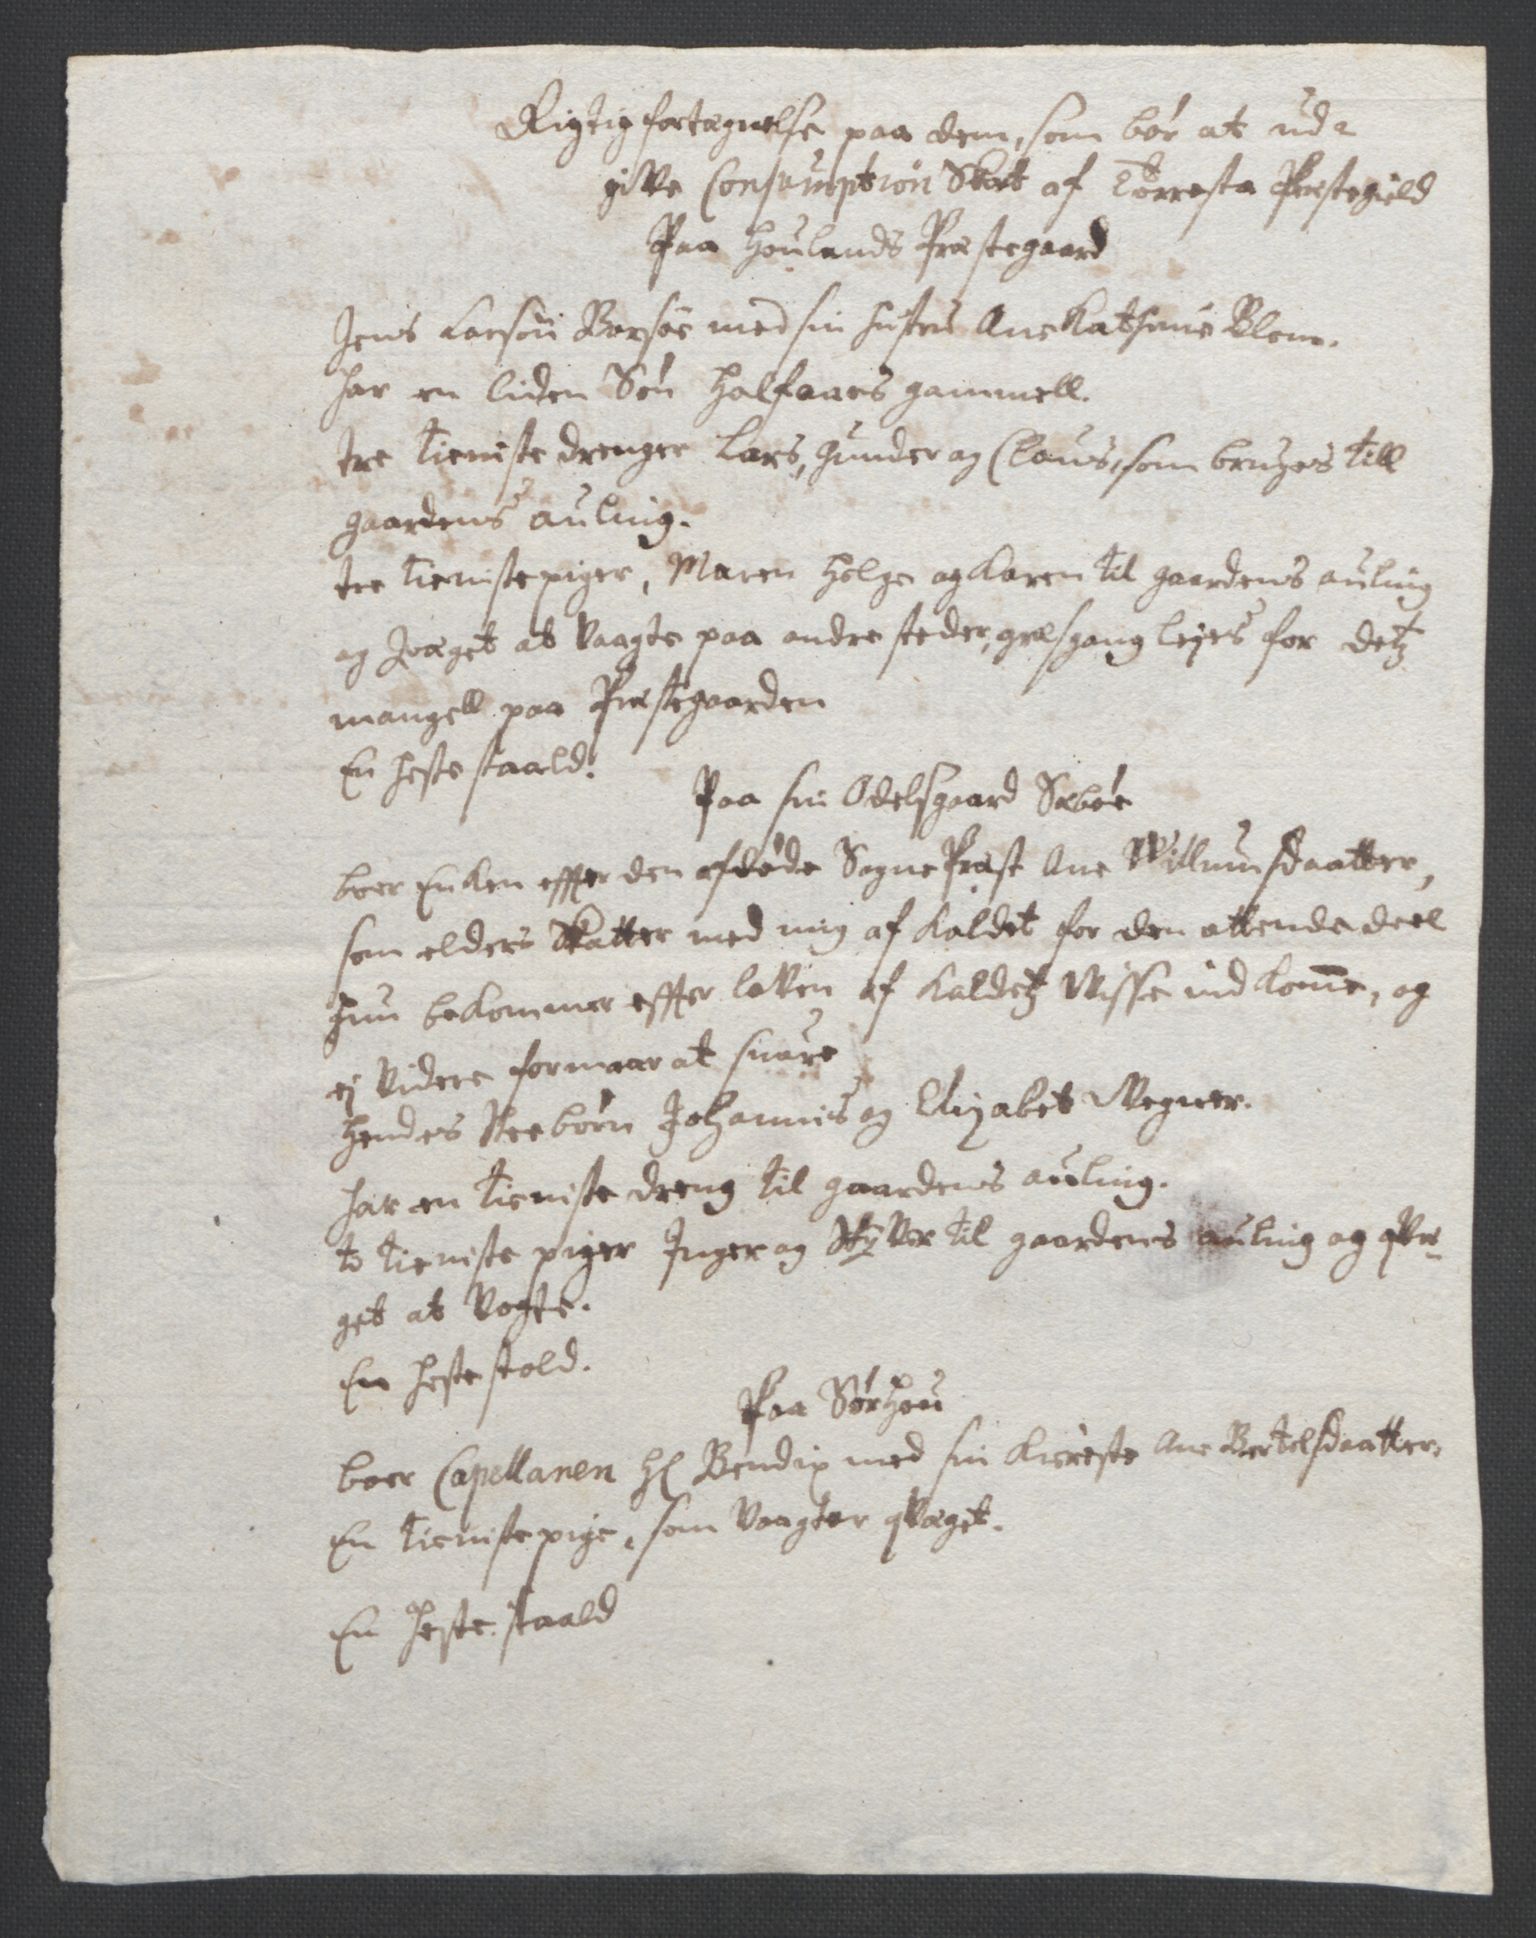 Rigtig fortegnelse paa dem, som bór at ud=
give Consumption Skat af Torresta Præstegield
Paa Houlands Præstegaard
Jens Larsón Borsóe med sin hustru Ane Kathrine Blom.
har en liden Són halfaars gammell.
tre tieniste drenger Lars, Gunder og Claus, som bruges till
gaardens auling.
tre tieniste piger, Maren Helge og Karen til gaardens auling
og qvæget at Vaagte paa andre steder, græsgang lejes for detz
mangell paa Præstegaarden
En heste staald.
Paa sin Odelsgaard Sæbóe
boer Enken effter den afdóde Sogne Præst Ane Willumsdaatter,
som elders Skatter med mig af Kaldet for den attende deel
hun bekommer effter loven af Kaldetz Visse ind komme, og
ej Videre formaar at suare
hendes Steebórn Johannis og Elizabet Wegner.
har en tieniste dreng til gaardens auling.
to tieniste piger Inger og til gaardens auling og qvæ=
get at Vogte.
En heste stold.
Paa Sórhou
boer Capellanen Hl Bendix med sin Kiereste Ane Bertelsdaatter.
En tieniste pige, som Vaagter qvæget.
En heste staald